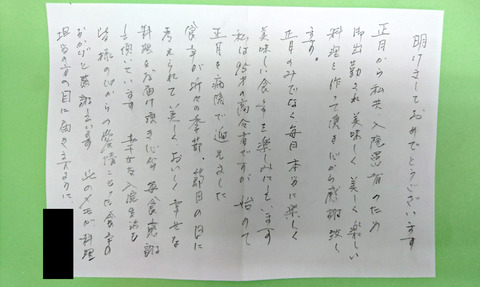 明けましておめでとうございます
正月から私共入院患者のため
御出勤され美味しく美しく楽しい
料理を作って頂き心から感謝致し
ます。
正月のみでなく毎日本当に楽しく
美味しい食事を楽しみにしています
私は95才の高令者ですが始めて
正月を病院で迎えました
食事が折々の季節、節目の日に
考えられて美しくおいしく幸せな
料理をお届け頂き心から毎食感謝
を頂いています 幸せな入院生活も
皆様の心からの愛情こもった食事の
おかげと感謝しています 此のメモが料理
担当の方の目に届きますように